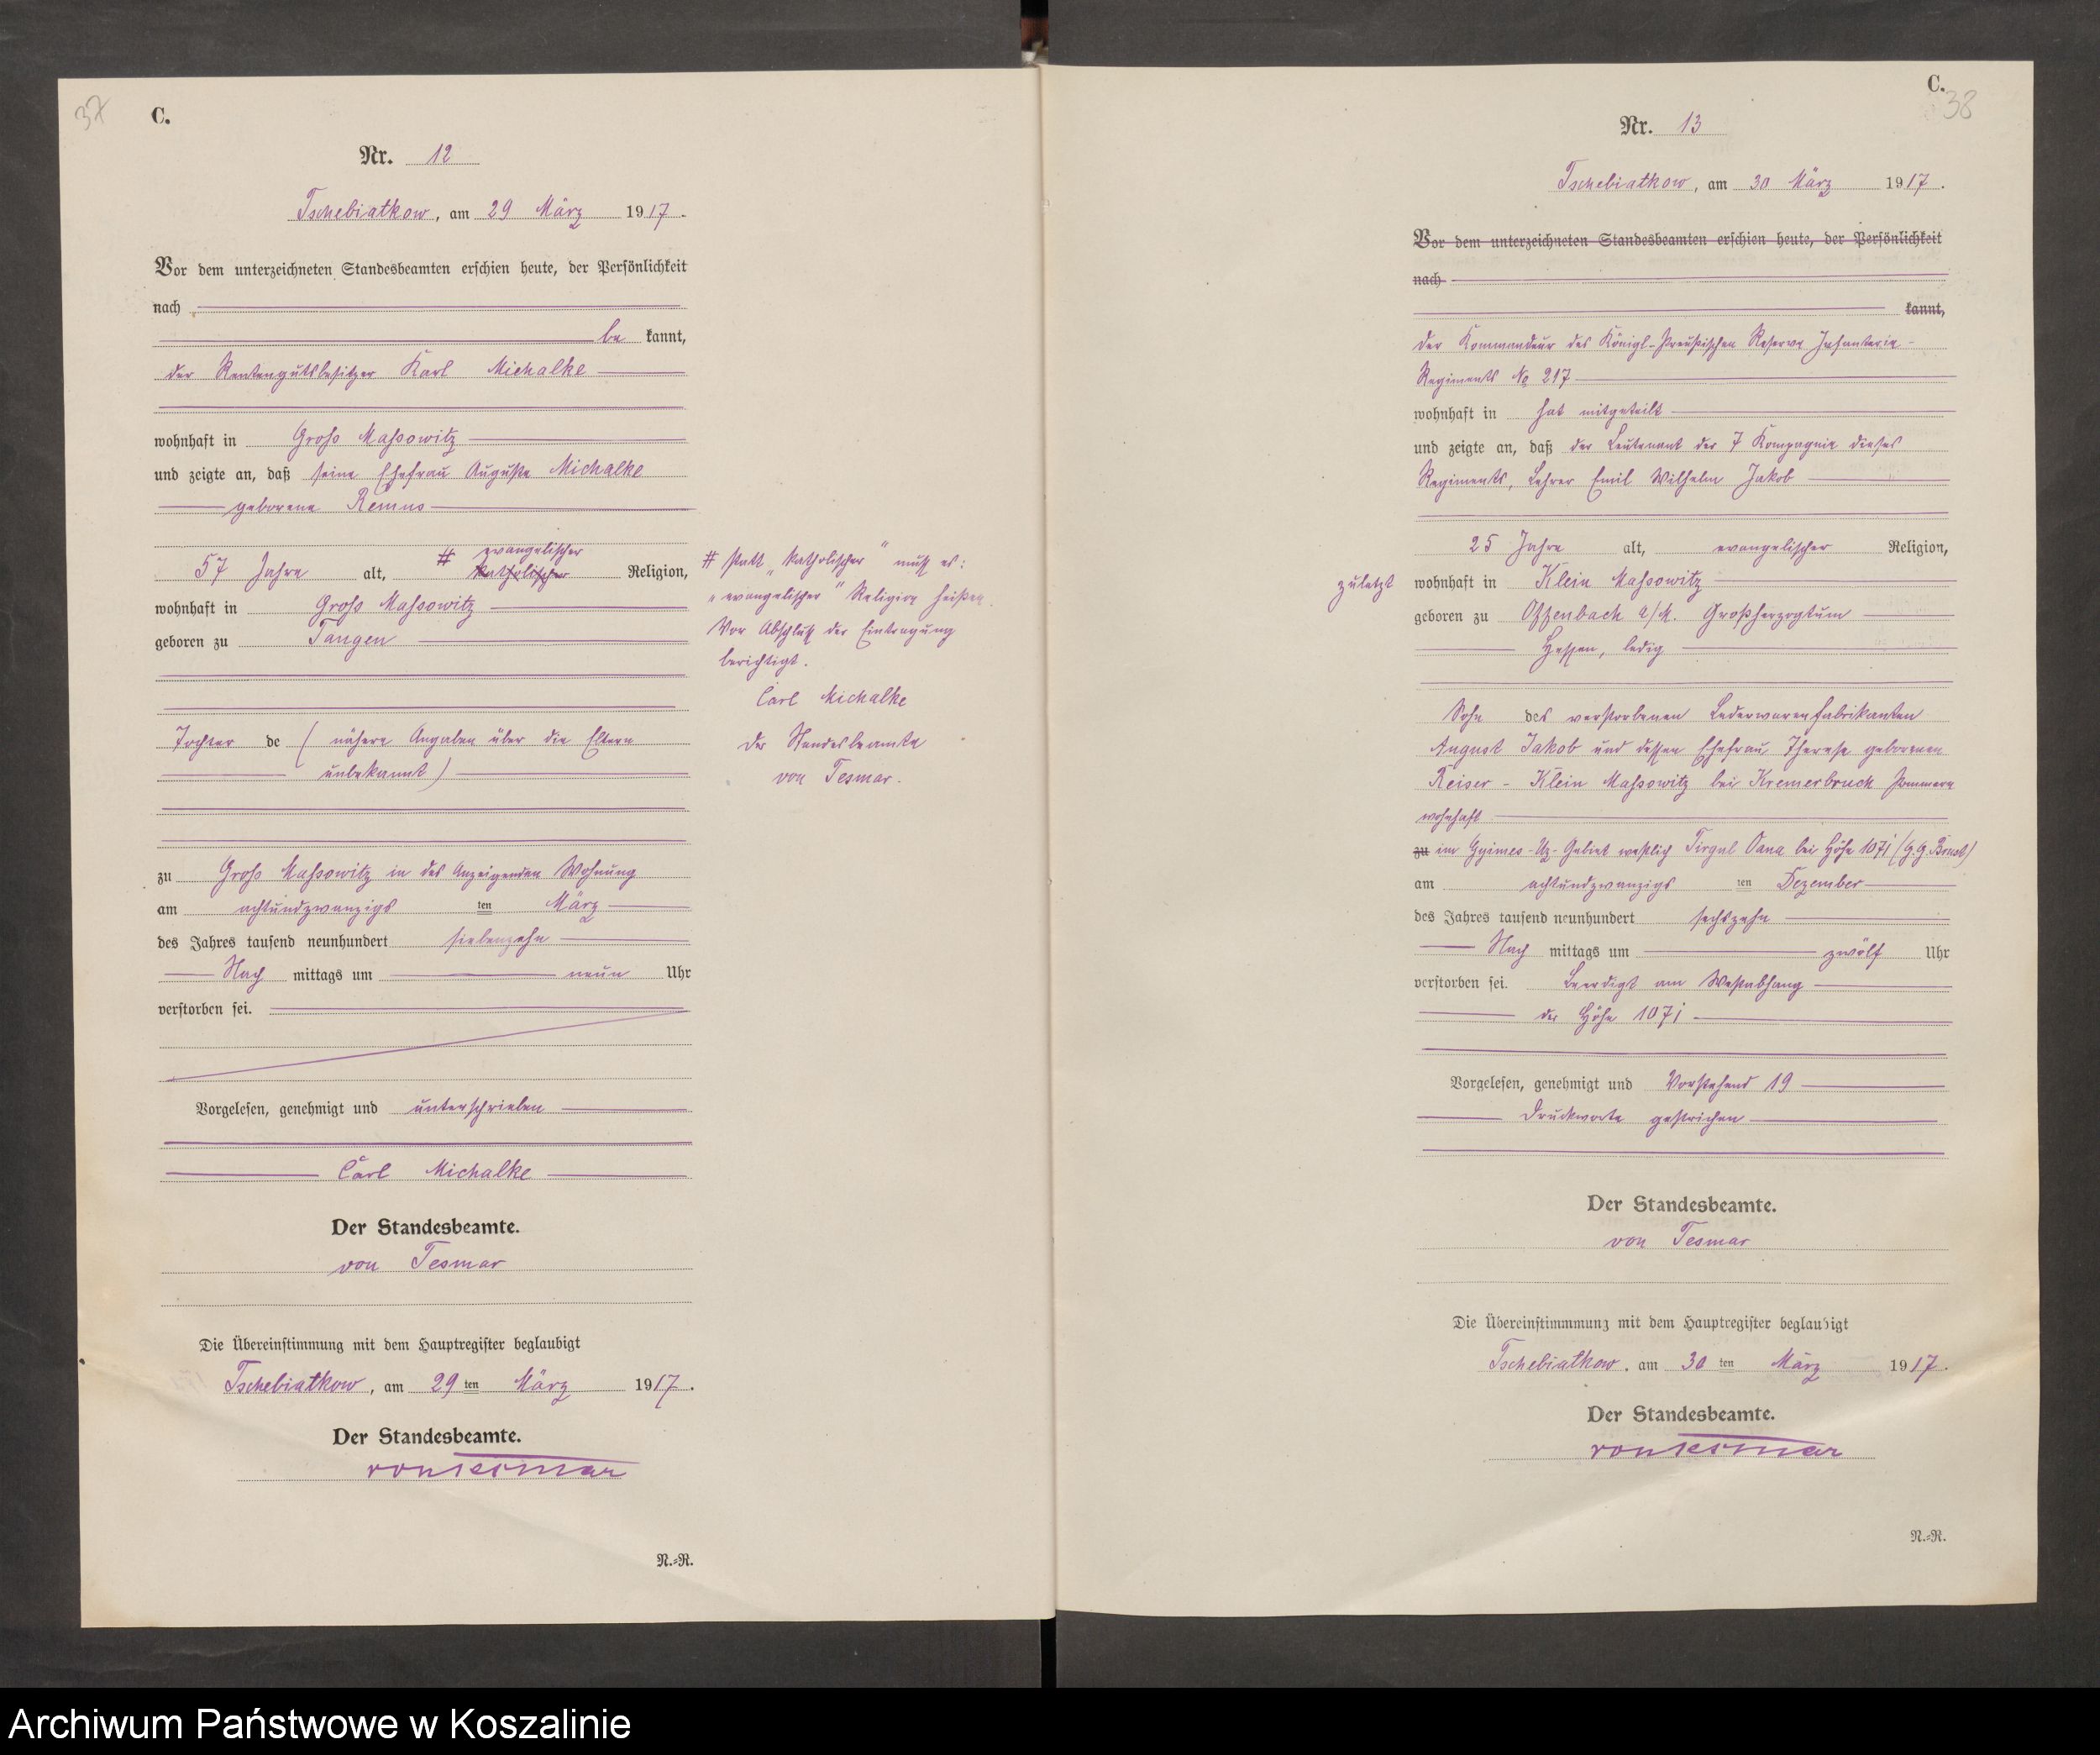 37
C.
Nr. 12
Tschebiatkow, am 29 März 1917.
Vor dem unterzeichneten Standesbeamten erschien heute, der Persönlichkeit
nach
be kannt,
der Rentengutsbesitzer Karl Michalke
wohnhaft in Gross Massowitz
und zeigte an, daß seine Ehefrau Auguste Michalke
geborene Remus
evangelischer
57 Jahre alt, # katholischer Religion,
wohnhaft in Gross Massowitz
geboren zu Tangen
Tochter de ( nähere Angaben über die Eltern
unbekannt )
zu Gross Massowitz in des Anzeigenden Wohnung
am achtundzwanzigs ten März
des Jahres tausend neunhundert siebenzehn
Nach mittags um neun Uhr
verstorben sei.
Vorgelesen, genehmigt und unterschrieben
Carl Michalke
Der Standesbeamte.
von Tesmar
Die Übereinstimmung mit dem Hauptregister beglaubigt
Tschebiatkow, am 29 ten März 1917.
Der Standesbeamte.
von Tesmar
N.=R.
# statt „katholischer" muß es:
„evangelischer" Religion heißen.
Vor Abschluß der Eintragung
berichtigt.
Carl Michalke
Der Standesbeamte
von Tesmar.
C.
38
Nr. 13
Tschebiatkow, am 30 März 1917.
Vor dem unterzeichneten Standesbeamten erschien heute, der Persönlichkeit
nach
kannt,
Der Kommandeur des Königl-Preußischen Reserve Infanterie-
Regiments No 217
wohnhaft in hat mitgeteilt
und zeigte an, daß der Leutenant der 7 Kompagnie dieses
Regiments, Lehrer Emil Wilhelm Jakob
25 Jahre alt, evangelischer Religion,
zuletzt wohnhaft in Klein Massowitz
geboren zu Offenbach a/M. Großherzogtum
Hessen, ledig
Sohn des verstorbenen Lederwarenfabrikanten
August Jakob und dessen Ehefrau Therese geborenen
Reiser - Klein Massowitz bei Kremerbruch Pommern
wohnhaft
zu im Gyimes-Uz-Gebiet westlich Tirgul Oana bei Höhe 1071 (G.G. Brust)
am achtundzwanzigs ten Dezember
des Jahres tausend neunhundert sechszehn
Nach mittags um zwölf Uhr
verstorben sei. Beerdigt am Westabhang
der Höhe 1071
Vorgelesen, genehmigt und Vorstehend 19
Druckworte gestrichen
Der Standesbeamte.
von Tesmar
Die Übereinstimmung mit dem Hauptregister beglaubigt
Tschebiatkow, am 30 ten März 1917.
Der Standesbeamte.
von Tesmar
N.=R.
Archiwum Państwowe w Koszalinie